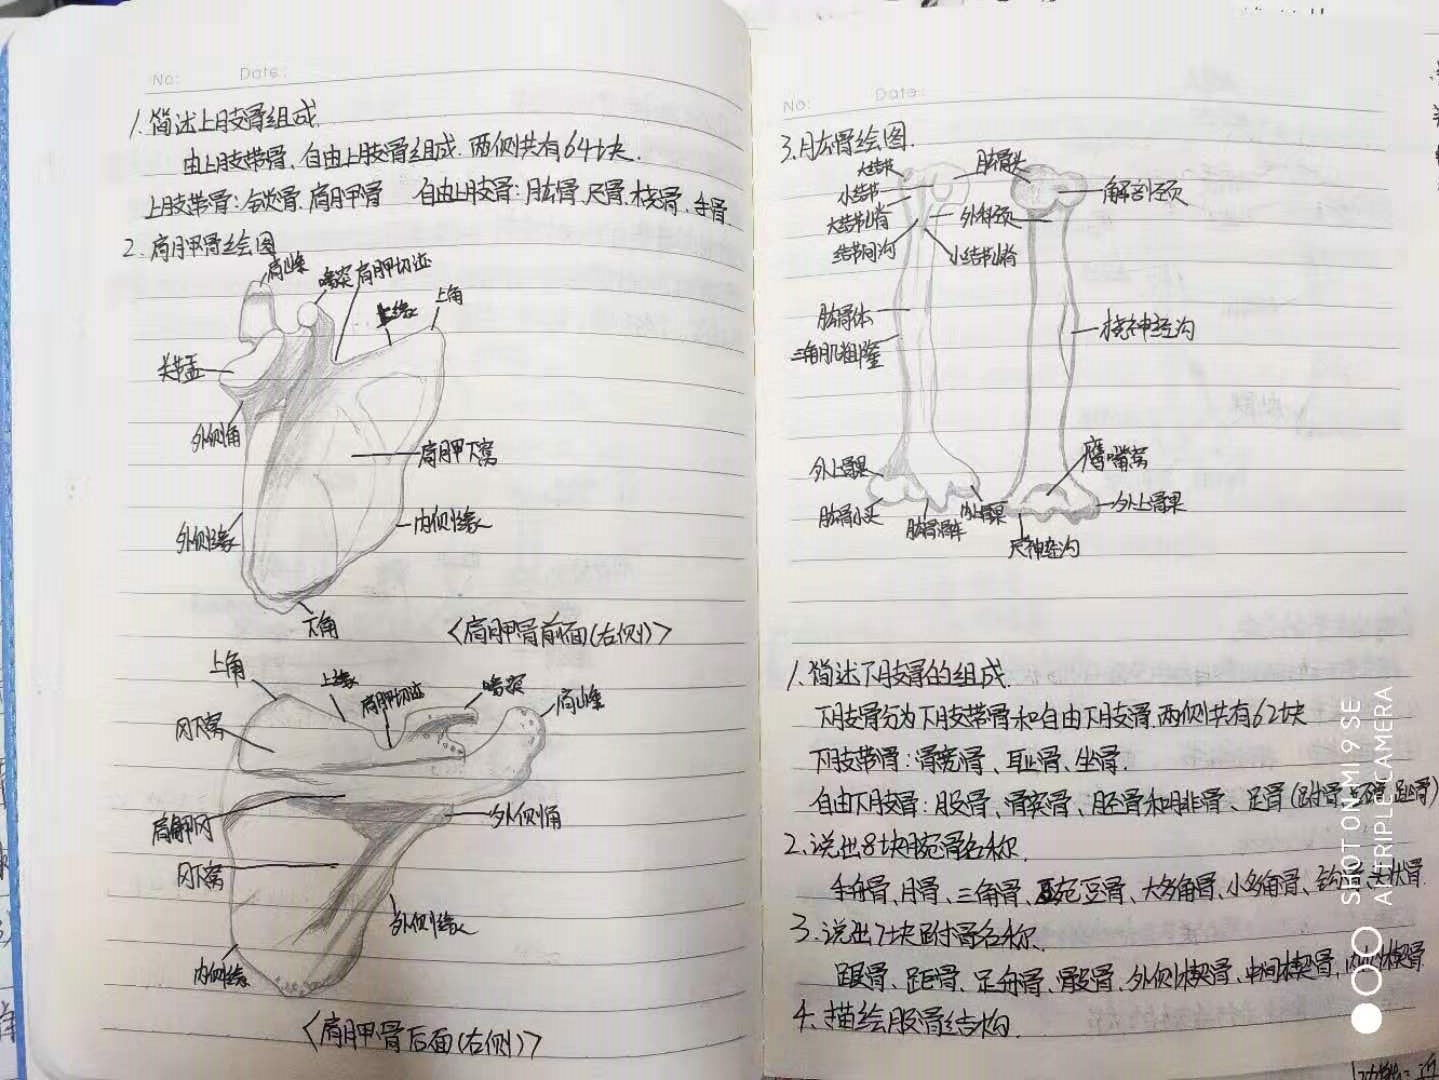 No:
Date:
1.简述上肢骨组成.
由上肢带骨、自由上肢骨组成.两侧共有64块.
上肢带骨:锁骨.肩胛骨 自由上肢骨:肱骨.尺骨.桡骨、手骨.
2.肩胛骨绘图
肩峰
喙突
肩胛切迹
上缘
上角
关节盂
外侧角
肩胛下窝
外侧缘
内侧缘
下角
<肩胛骨前面(右侧)>
上角
上缘
肩胛切迹
喙突
肩峰
冈下窝
肩胛冈
外侧角
冈下窝
外侧缘
内侧缘
<肩胛骨后面(右侧)>
No:
Date:
3.肱骨绘图.
大结节
肱骨头
小结节
解剖颈
大结节嵴
外科颈
结节间沟
小结节嵴
肱骨体
桡神经沟
三角肌粗隆
鹰嘴窝
外上髁
外上髁
肱骨小头
肱骨滑车
内上髁
尺神经沟
1.简述下肢骨的组成.
下肢骨分为下肢带骨和自由下肢骨.两侧共有62块
下肢带骨:骨宽骨、耻骨、坐骨.
自由下肢骨:股骨、髌骨、胫骨和腓骨、足骨(跗骨、跖骨、趾骨)
2.说出8块腕骨名称.
手舟骨、月骨、三角骨、豌豆骨、大多角骨、小多角骨、钩骨、头状骨.
3.说出7块跗骨名称.
跟骨、距骨、足舟骨、骰骨、外侧楔骨、中间楔骨、内侧楔骨.
4.描绘股骨结构.
SHOT ON MI 9 SE
AI TRIPLE CAMERA